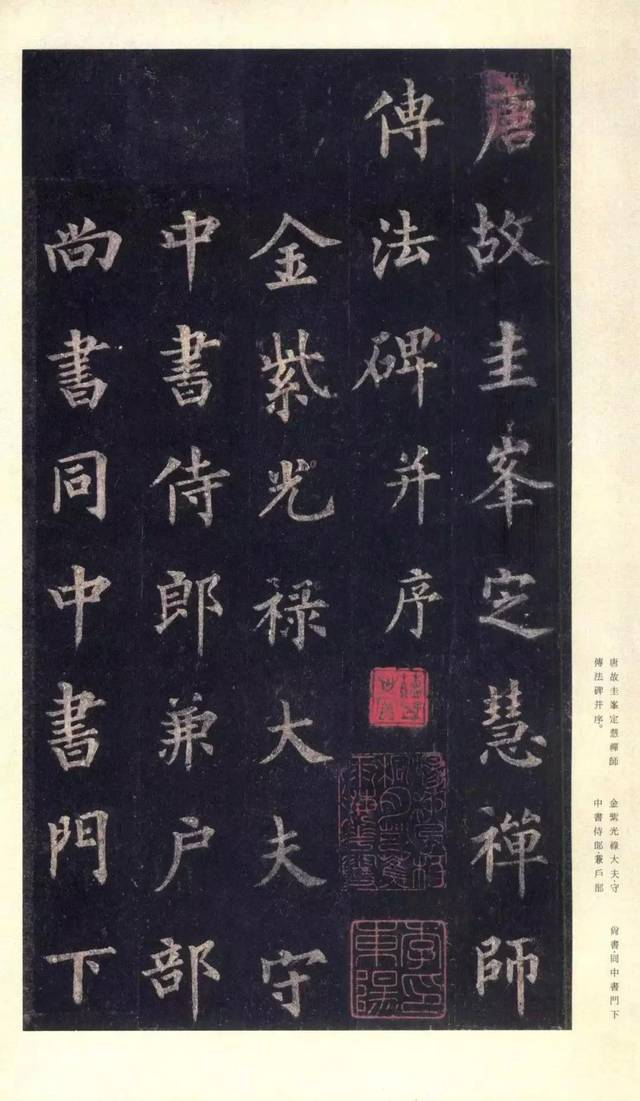 唐故圭峯定慧禪師
傳法碑并序
金紫光祿大夫守
中書侍郎兼户部
尚書同中書門下
唐故圭峯定慧禪師
傳法碑并序。
金紫光祿大夫·守
中書侍郎·兼戶部
尚書·同中書門下